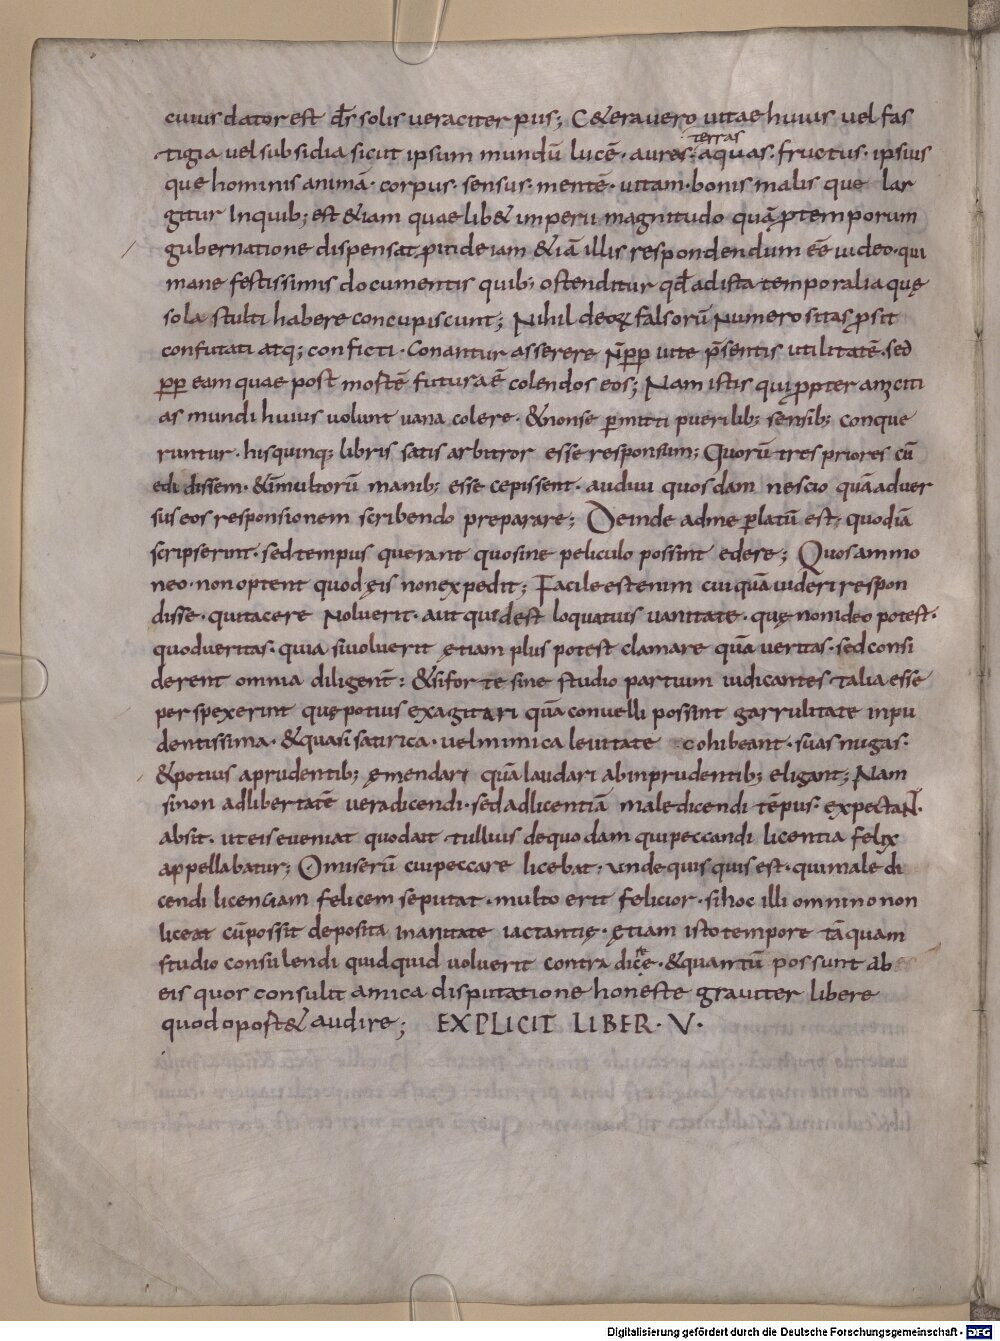 cuius dator est d̄s solis veraciter piis; C&era vero vitae huius vel fas
tigia vel subsidia sicut ipsum mundū lucē· aures· aquas· fructus· ipsius
terras
que hominis animā· corpus· sensus· mentē· vitam· bonis malis que lar
gitur Inquib; est &iam quae lib& imperii magnitudo quā ꝓ temporum
gubernatione dispensat ꝓinde iam &iā illis respondendum eē video· qui
manefestissimis documentis quib; ostenditur qđ ad ista temporalia quę
sola stulti habere concupiscunt; Nihil deoꝝ falsorū Numerositas ꝓsit
confutati atq; conficti· Conantur asserere N̄ ꝓp vitę p̄sentis utilitatē· sed
ꝓp eam quae post mortē futura ē colendos eos; Nam istis qui ꝓpter amiciti
as mundi huius volunt vana colere· & non se ꝑmitti puerilib; sensib; conque
runtur· his quinq; libris satis arbitror esse responsum; Quorū tres priores cū
edidissem· & in multorū manib; esse cepissent· audivi quosdam nescio quā adver
sus eos responsionem scribendo preparare; Deinde ad me ꝑlatū est; quod iā
scripserint· sed tempus querant quo sine periculo possint edere; Quos ammo
neo· non optent quod eis non expedit; Facile est enim cuiquā videri respon
disse· qui tacere Noluerit· aut quid est loquatius vanitate· quę non ideo potest·
quod veritas· quia si voluerit ętiam plus potest clamare quā veritas· sed consi
derent omnia diligent̄: & si forte sine studio partium iudicantes talia esse
perspexerint quę potius exagitari quā convelli possint garrulitate inpu
dentissima· & quasi satirica· vel mimica levitate cohibeant· suas nugas·
& potius a prudentib; ęmendari quā laudari ab inprudentib; eligant; Nam
si non ad libertatē vera dicendi· sed ad licentiā maledicendi tēpus· expectaNT·
absit· ut eis eveniat quod ait tullius de quodam qui peccandi licentia felix
appellabatur; O miserū cui peccare licebat· unde quisquis est· qui maledi
cendi licenciam felicem se putat· multo erit felicior· si hoc illi omnino non
liceat cū possit deposita inanitate iactantię· ętiam isto tempore tāquam
studio consulendi quidquid voluerit contra dicere· & quantū possunt ab
eis quos consulit amica disputatione honeste graviter libere
quod oport& audire; EXPLICIT LIBER· V·
Digitalisierung gefördert durch die Deutsche Forschungsgemeinschaft - DFG